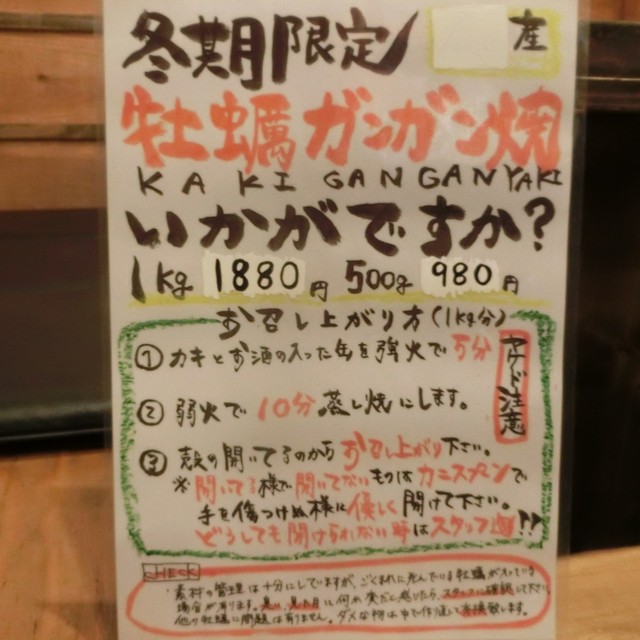 冬期限定 産
牡蠣ガンガン焼
KAKI GANGANYAKI
いかがですか?
1kg 1880円 500g 980円
お召し上がり方(1kg分)
ヤケド注意
① カキとお酒の入った缶を強火で5分
② 弱火で10分蒸し焼にします。
③ 殻の開いてるのからお召し上がり下さい。
※開いてる様で開いてないものはカニスプーンで
手を傷つけぬ様に優しく開けて下さい。
どうしても開けられない時はスタッフ迄!!
CHECK
素材の管理は十分にしていますが、ごくまれに死んでいる牡蠣が入っている
場合が有ります。臭い、見た目に何か変だと感じたら、スタッフに確認して下さい。
他の牡蠣に問題は有りません。ダメな物は中で作り直して